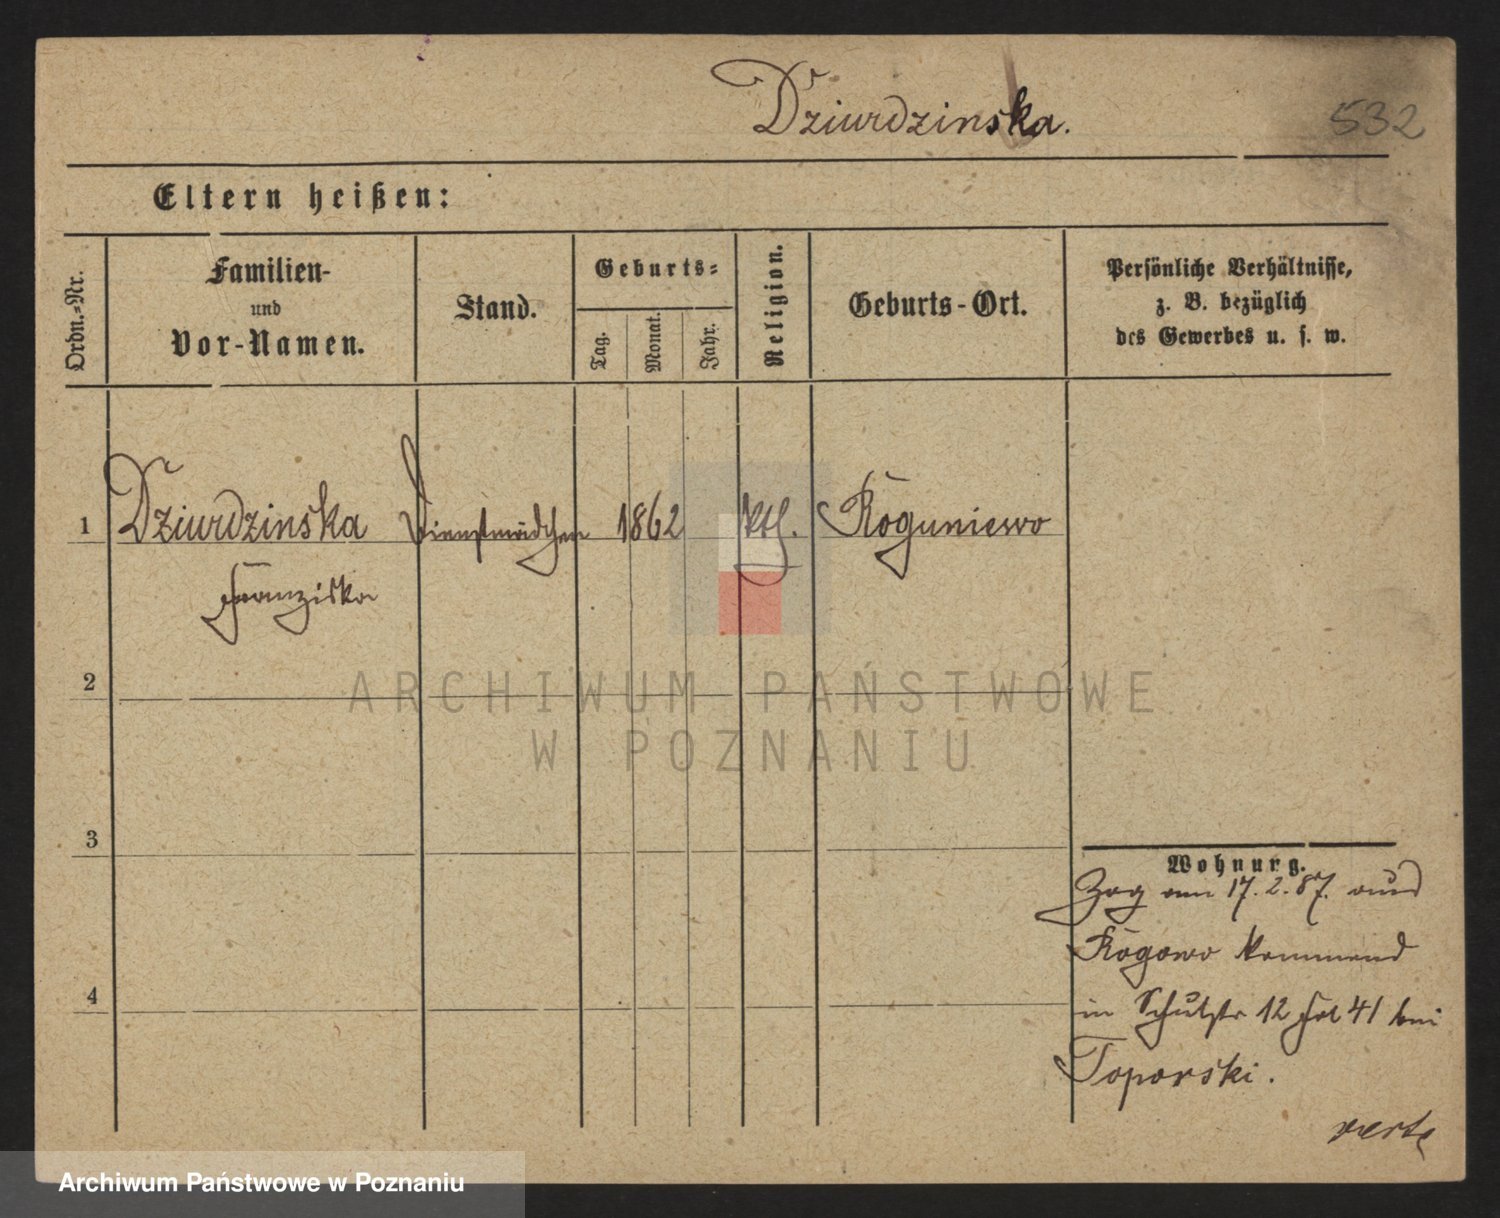 Dziurdzinska.
532
Eltern heißen:
Ordn.-Nr.
Familien-
und
Vor-Namen.
Stand.
Geburts-
Tag.
Monat.
Jahr.
Religion.
Geburts-Ort.
Persönliche Verhältnisse,
z. B. bezüglich
des Gewerbes u. s. w.
1 Dziurdzinska Dienstmädchen 1862 kth. Roguniewo
Franziska
2
ARCHIWUM PAŃSTWOWE
W POZNANIU
3
Wohnung.
Zog am 17.2.87. aus
Rogowo kommend
4
in Schulstr 12 41 bei
Toporski.
verte
Archiwum Państwowe w Poznaniu